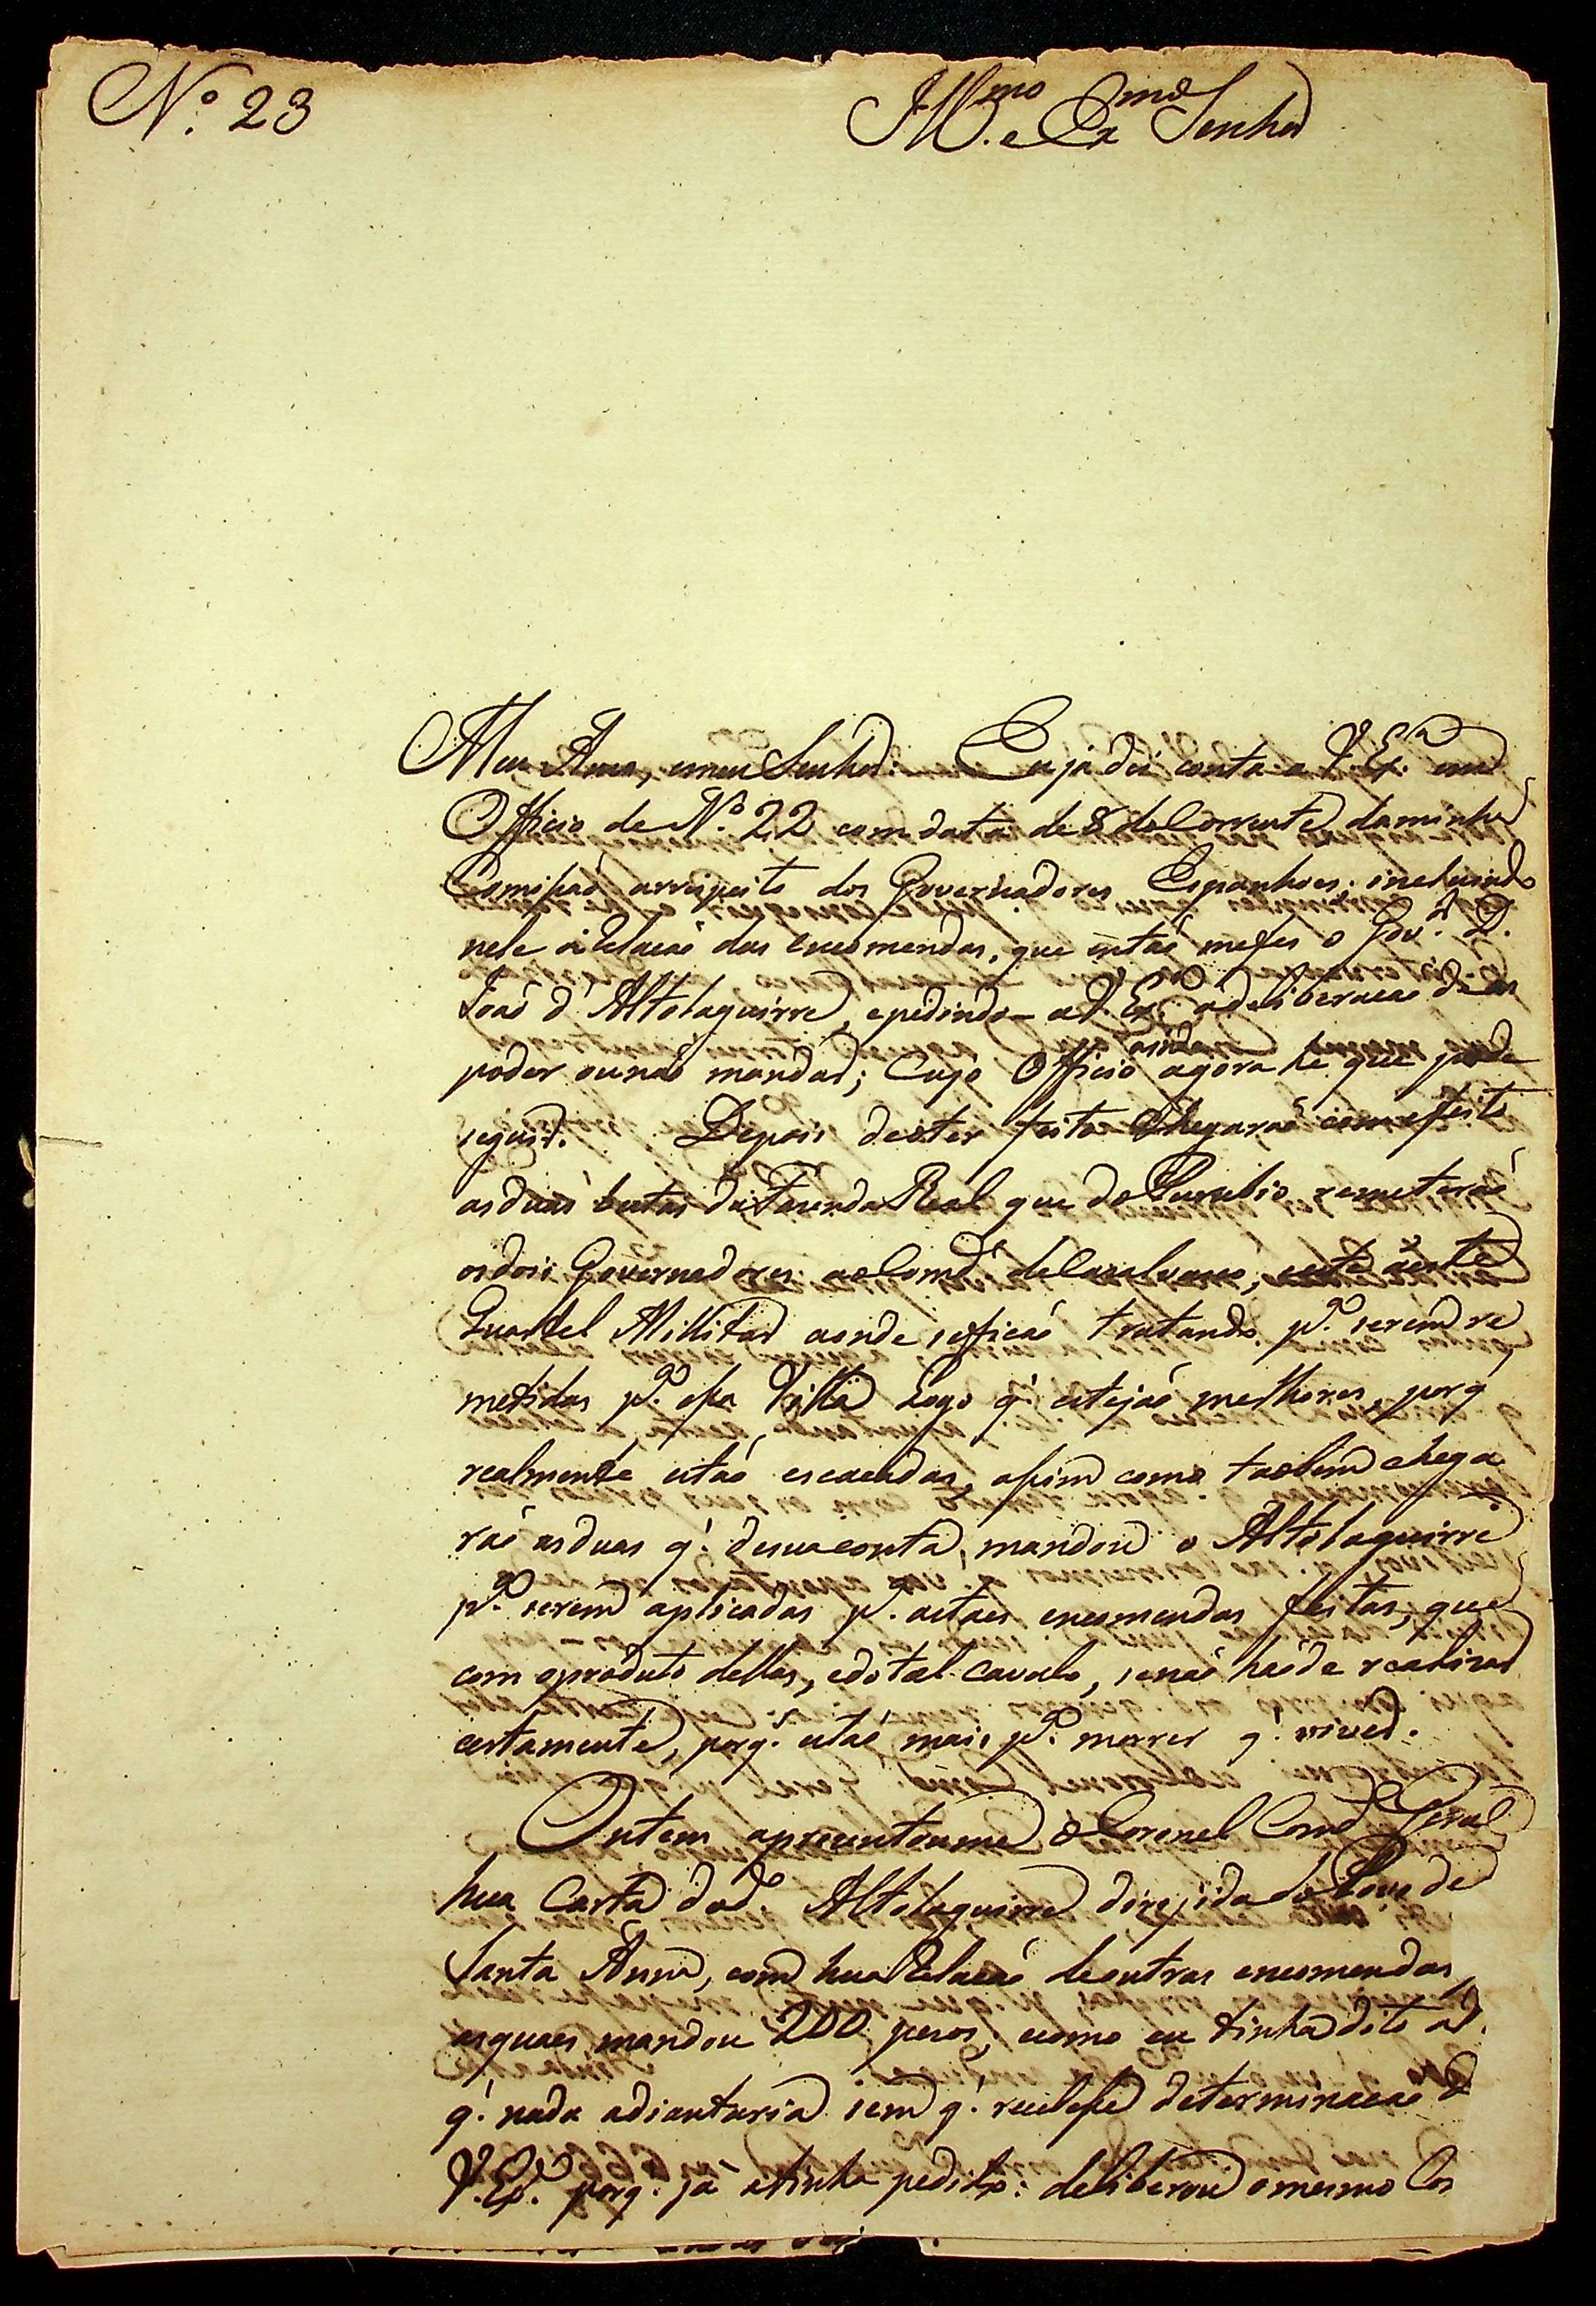 Nº. 23
Illmo. e Exmo Senhor
Meu Amo, e meu Senhor. Eu já dei conta a V. Exª. em
Officio de Nº. 22 com data de 8 do Corrente da minha
Comissaõ arrespeito dos Governadores Espanhoes; incluindo
nele a Relacaõ das encomendas, que entaõ me fes o Govor. D.
Joaõ d'Altolaguirre, epedindo a V. Exª. adeliberacaõ de as
poder ounaõ mandar; Cujo Officio agora he que pode
seguir. Depois deoter feito chegaraõ com efeito
asduas bestas da Fazenda Real que do remeteraõ
osdois Governadores ao Comde. de Casalvasco, e este aeste
Quartel Millitar aonde seficaõ tratando pª. serem re
metidas pª. essa Villa Logo q'. estejaõ melhores, porq'
realmente estaõ escaendas, assim como taobem chega
raõ asduas q'. desuaconta, mandou o Altolaguirre
pª. serem aplicadas pª. astaes encomendas feitas, que
com oproduto dellas, edotal cavalo, senaõ haõde realizar
certamente, porq'. estaõ mais pª. morrer q'. viver.
Ontem apresentoume o Coronel Comde. Geral
hua Carta dodº. Altolaguirre dirijida do Povo de
Santa Anna, com hua Relacaõ deoutras encomendas
asquaes mandou 200 pesos, ecomo eu tinha dito
q'. nada adiantaria sem q'. recebese determinacaõ de
V. Exª. porq'. já atinha pedido: deliberou omesmo Co